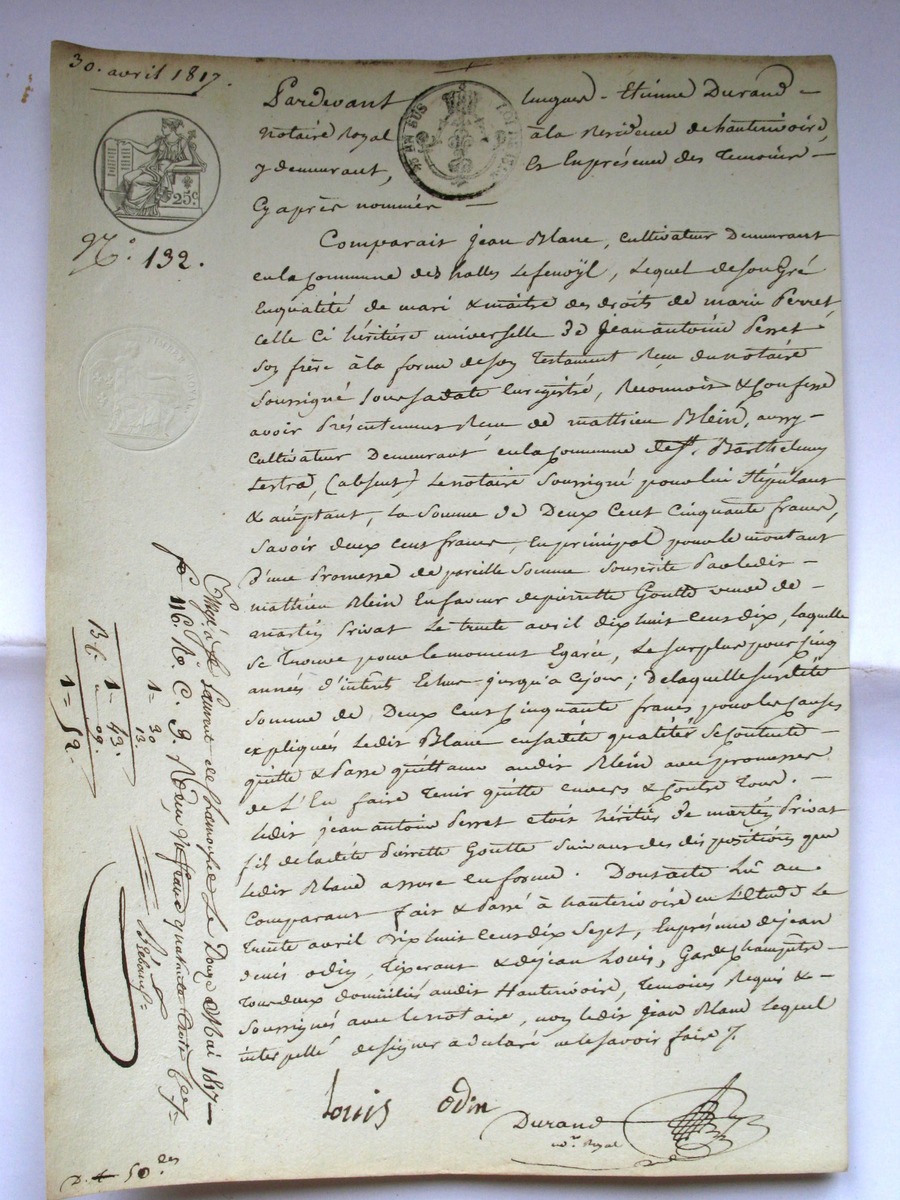 30. avril 1817.
Pardevant Lugues - Etienne Durand -
Notaire Royal à la Residence de hauterivoire,
y demeurant, Et En présence des Temoins -
Cy après nommés -
25c
N.o 132.
Comparait Jean Blanc, cultivateur Demeurant
en la Commune des halles Lefenoÿl, Lequel de son Gré
Enqualité de mari & maitre des droits de marie Perret,
celle ci héritière universelle de Jean antoine Perret
Son frère à la forme de son Testament Reçu du notaire
Soussigné sous sa date Enregistré, Reconnoit & Confesse
avoir Présentement Reçu de mathieu Blein, aussy
Cultivateur Demeurant en la Commune de St. Barthelemy
Lestra, (absent) Le notaire Soussigné pour lui Stipulant
& acceptant, La Somme de Deux Cent Cinquante francs,
Savoir deux cent francs, En principal pour le montant
D'une Promesse de pareille Somme Souscrite Par ledit
mathieu Blein En faveur de pierrette Goutte veuve de
martin Privat Le trente avril dix huit cent dix, laquelle
Se Trouve pour le moment Egarée, Le surplus pour Cinq
années d'interets Echus jusqu'a Ce jour; De laquelle susdite
Somme de Deux Cent Cinquante francs pour les Causes
expliquées Ledit Blanc en sadite qualité Se Contente -
quitte & Passe quittance audit Blein avec promesse
de L'En faire Tenir quitte envers & Contre Tous. -
Ledit jean antoine Perret etoit héritier de martin Privat
fils de ladite Pierrette Goutte Suivant des dispositions que
Ledit Blanc assure en forme. Dont acte Lu au
Comparant fait & Passé à hauterivoire en L'Etude Le
Trente avril Dix huit cent dix Sept, En présence de jean
denis odin, Tixerant & de jean Louis, Garde Champetre
Tous deux domiciliés audit Hauterivoire, Temoins Requis &
Soussignés avec le notaire, non ledit Jean Blanc lequel
interpellé de signer a declaré ne le savoir faire.
Louis Odin
Durand
no.re Royal
Enreg.é à St. Laurent de Chamousset Le Douze Mai 1817
fo 116. Ro. C. 9. Reçu
1 = 30
13.
1 - 43.
Bf. " 09.
1 = 52 -
50